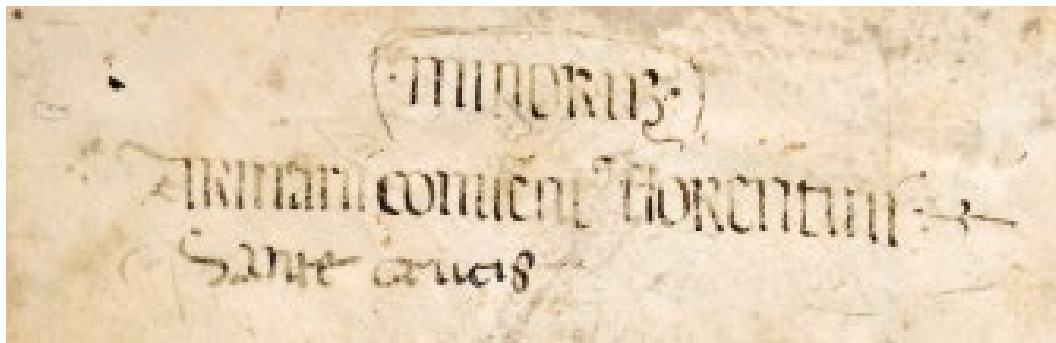 ·minoruʒ·
Armarii conuentꝰ florentini
Sante crucis